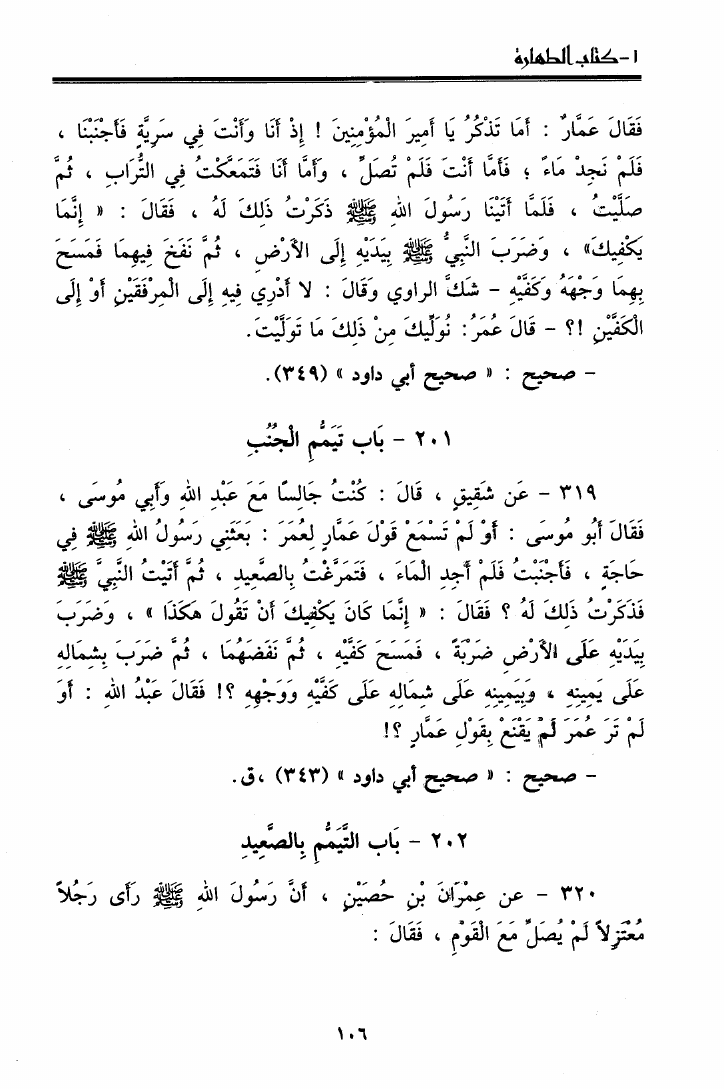 ١-كتاب الطهارة
فَقَالَ عَمَّارٌ : أَمَا تَذْكُرُ يَا أَمِيرَ الْمُؤْمِنِينَ ! إِذْ أَنَا وَأَنْتَ فِي سَرِيَّةٍ فَأَجْنَبْنَا ،
فَلَمْ نَجِدْ مَاءً ؛ فَأَمَّا أَنْتَ فَلَمْ تُصَلِّ ، وَأَمَّا أَنَا فَتَمَعَّكْتُ فِي التُّرَابِ ، ثُمَّ
صَلَّيْتُ ، فَلَمَّا أَتَيْنَا رَسُولَ اللهِ ﷺ ذَكَرْتُ ذَلِكَ لَهُ ، فَقَالَ : « إِنَّمَا
يَكْفِيكَ» ، وَضَرَبَ النَّبِيُّ ﷺ بِيَدَيْهِ إِلَى الأَرْضِ ، ثُمَّ نَفَخَ فِيهِمَا فَمَسَحَ
بِهِمَا وَجْهَهُ وَكَفَّيْهِ – شَكَّ الراوي وَقَالَ : لا أَدْرِي فِيهِ إِلَى الْمِرْفَقَيْنِ أَوْ إِلَى
الْكَفَّيْنِ !؟ – قَالَ عُمَرُ: نُوَلِّيكَ مِنْ ذَلِكَ مَا تَوَلَّيْتَ.
– صحيح : « صحيح أبي داود » (٣٤٩).
٢٠١ – بَاب تَيَمُّمِ الْجُنُبِ
٣١٩ – عَن شَقِيقٍ ، قَالَ : كُنْتُ جَالِسًا مَعَ عَبْدِ اللهِ وَأَبِي مُوسَى ،
فَقَالَ أَبُو مُوسَى : أَوْ لَمْ تَسْمَعْ قَوْلَ عَمَّارٍ لِعُمَرَ : بَعَثَنِي رَسُولُ اللهِ ﷺ فِي
حَاجَةٍ ، فَأَجْنَبْتُ فَلَمْ أَجِدِ الْمَاءَ ، فَتَمَرَّغْتُ بِالصَّعِيدِ ، ثُمَّ أَتَيْتُ النَّبِيَّ ﷺ
فَذَكَرْتُ ذَلِكَ لَهُ ؟ فَقَالَ : « إِنَّمَا كَانَ يَكْفِيكَ أَنْ تَقُولَ هَكَذَا » ، وَضَرَبَ
بِيَدَيْهِ عَلَى الأَرْضِ ضَرْبَةً ، فَمَسَحَ كَفَّيْهِ ، ثُمَّ نَفَضَهُمَا ، ثُمَّ ضَرَبَ بِشِمَالِهِ
عَلَى يَمِينِهِ ، وَبِيَمِينِهِ عَلَى شِمَالِهِ عَلَى كَفَّيْهِ وَوَجْهِهِ ؟! فَقَالَ عَبْدُ اللهِ : أَوَ
لَمْ تَرَ عُمَرَ لَمْ يَقْنَعْ بِقَوْلِ عَمَّارٍ ؟!
– صحيح : « صحيح أبي داود » (٣٤٣) ،ق.
٢٠٢ – بَاب التَّيَمُّمِ بِالصَّعِيدِ
٣٢٠ – عن عِمْرَانَ بْنِ حُصَيْنٍ ، أَنَّ رَسُولَ اللهِ ﷺ رَأَى رَجُلاً
مُعْتَزِلاً لَمْ يُصَلِّ مَعَ الْقَوْمِ ، فَقَالَ :
١٠٦